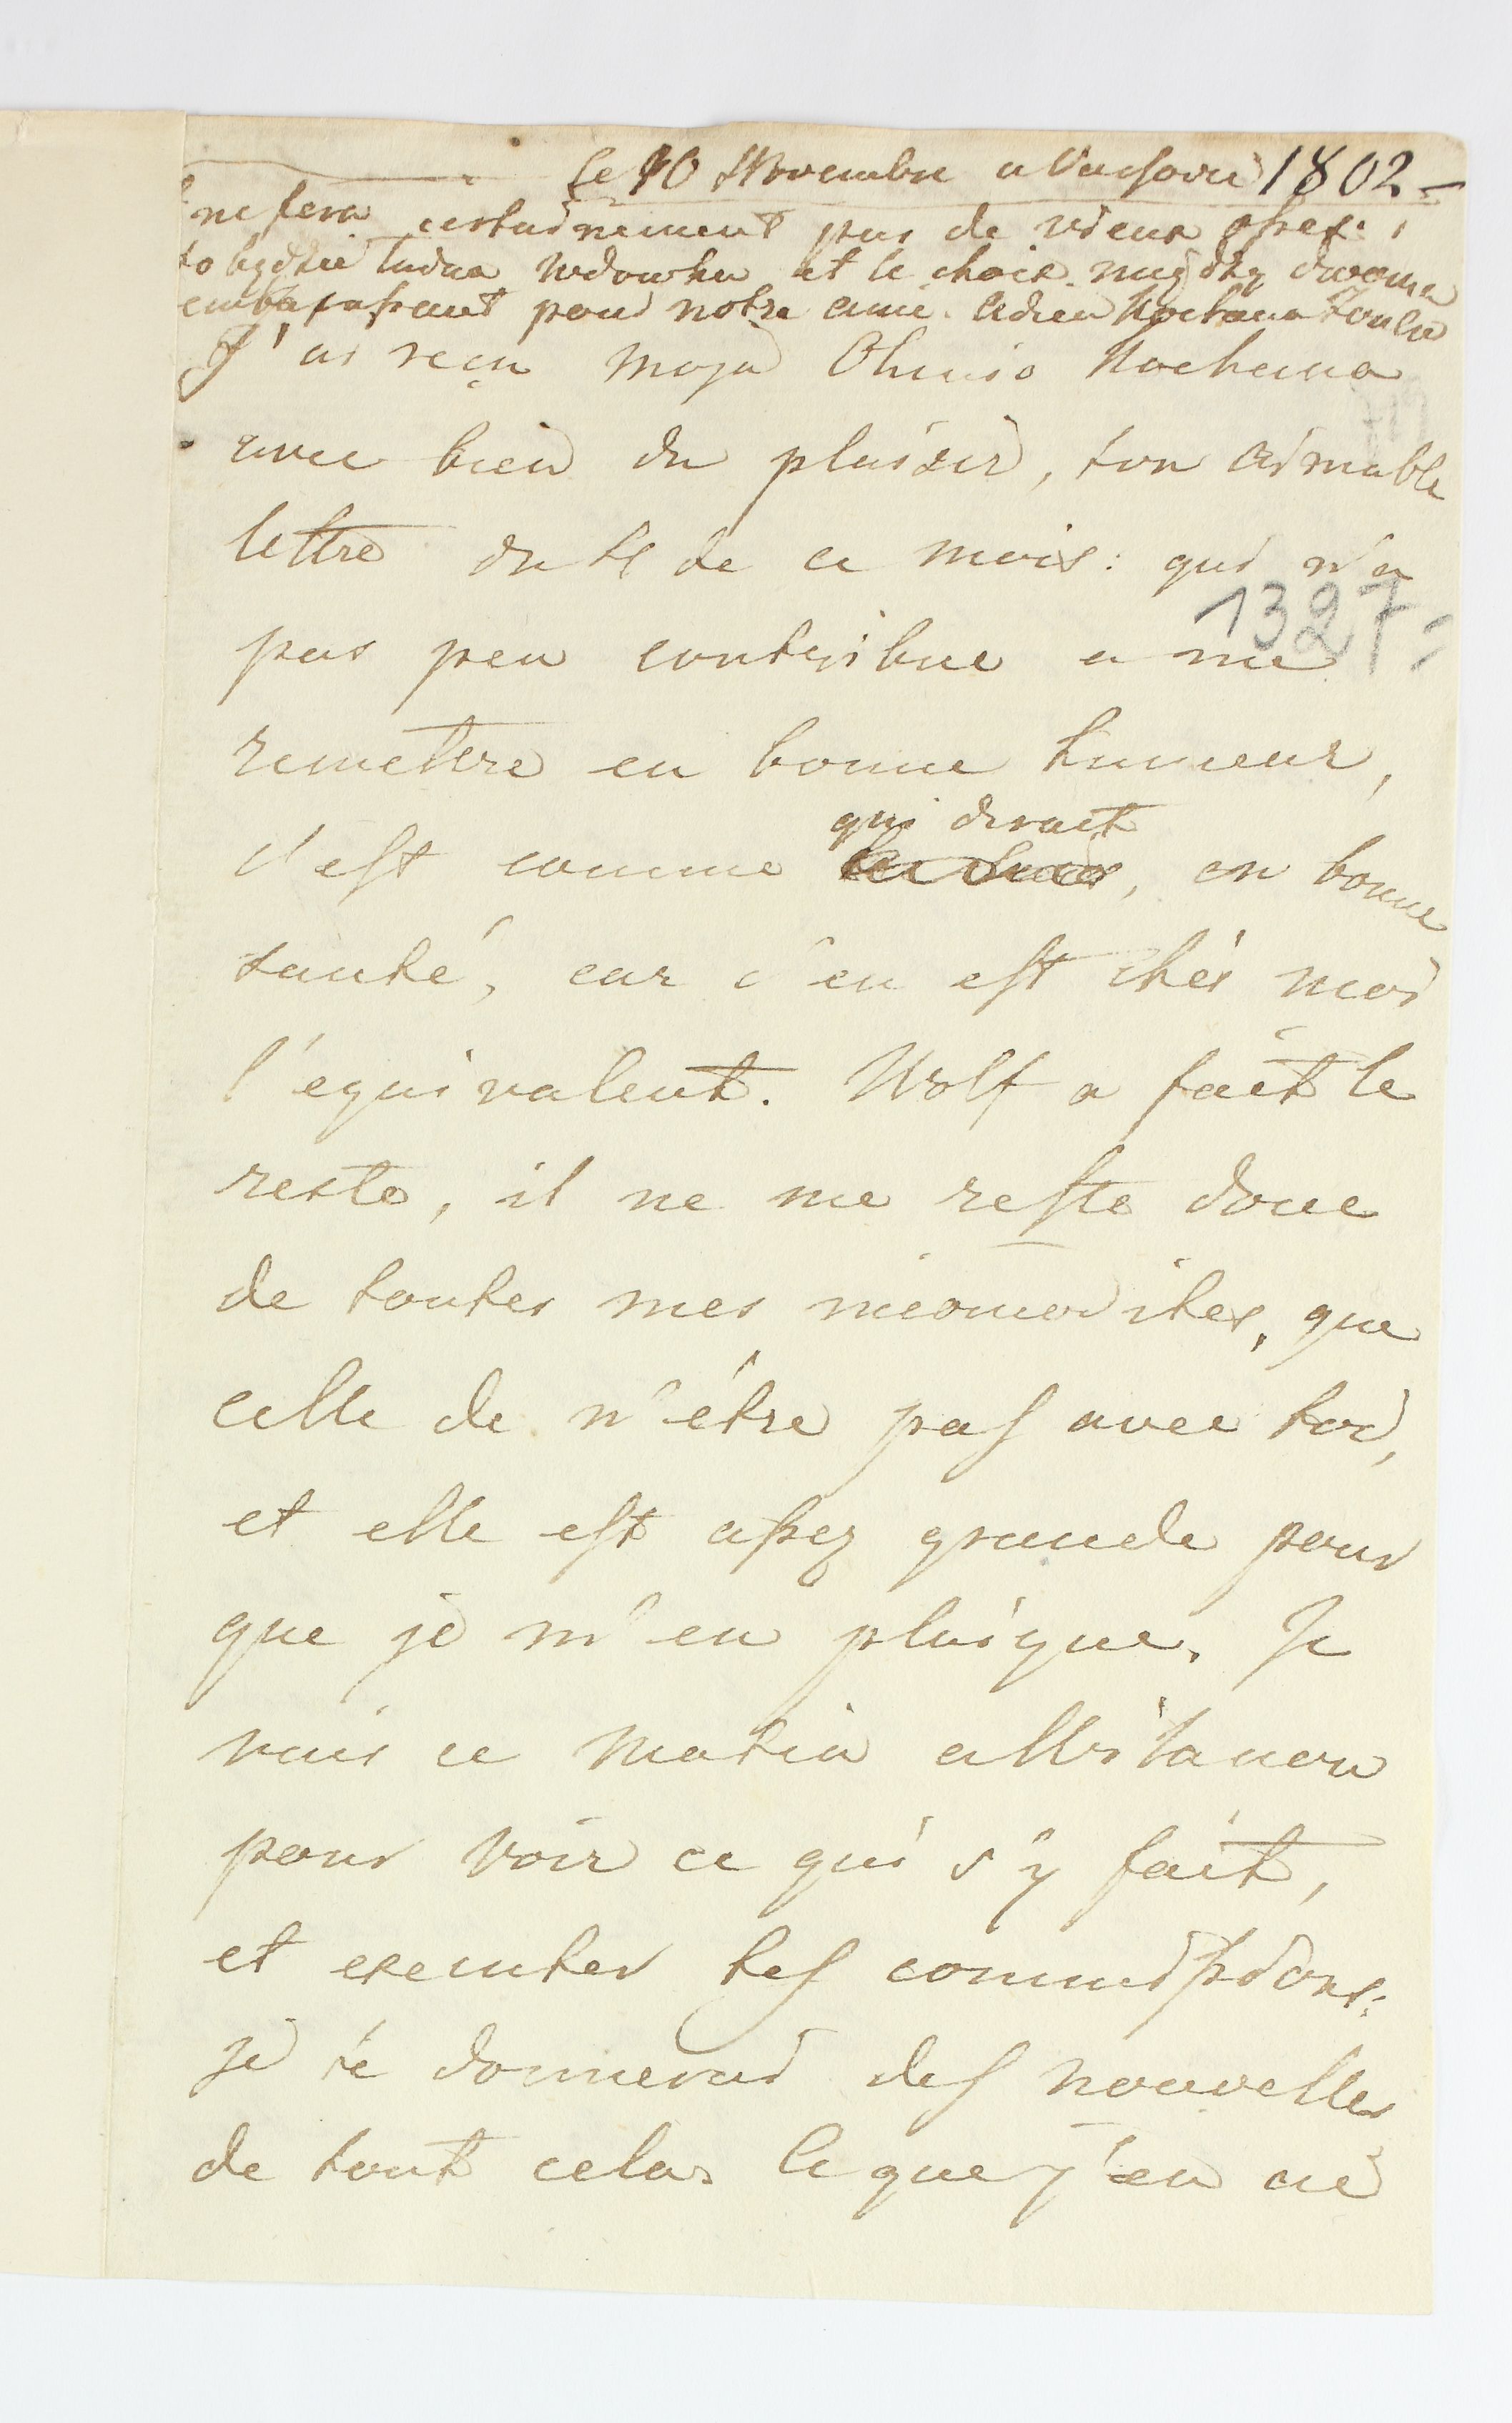 Le 10 Novembre a Varsovie 1802 –
ne fera certainement pas de vieux os
to będzie ładna wdowka et le choix między dwoma
embarassant pour notre ami. Adieu Kochana Żonko
J'ai reçu moja Olunio Kochana
avec bien du plaisir, ton aimable
lettre du 4 de ce mois: qui n'a
1327
pas peu contribue a me
remettre en bonne humeur,
c'est comme qui diroit, en bonne
santé, car c'en est chés moi
l'equivalent. Wolf a fait le
reste, il ne me reste donc
de toutes mes incomodites, que
celle de n'être pas avec toi,
et elle est assez grande pour
que je m'en plaigne. Je
vais ce matin a Wilanow
pour voir ce qui s'y fait,
et executer tes commissions:
je te donnerai des nouvelles
de tout cela. Ce que j'en ai